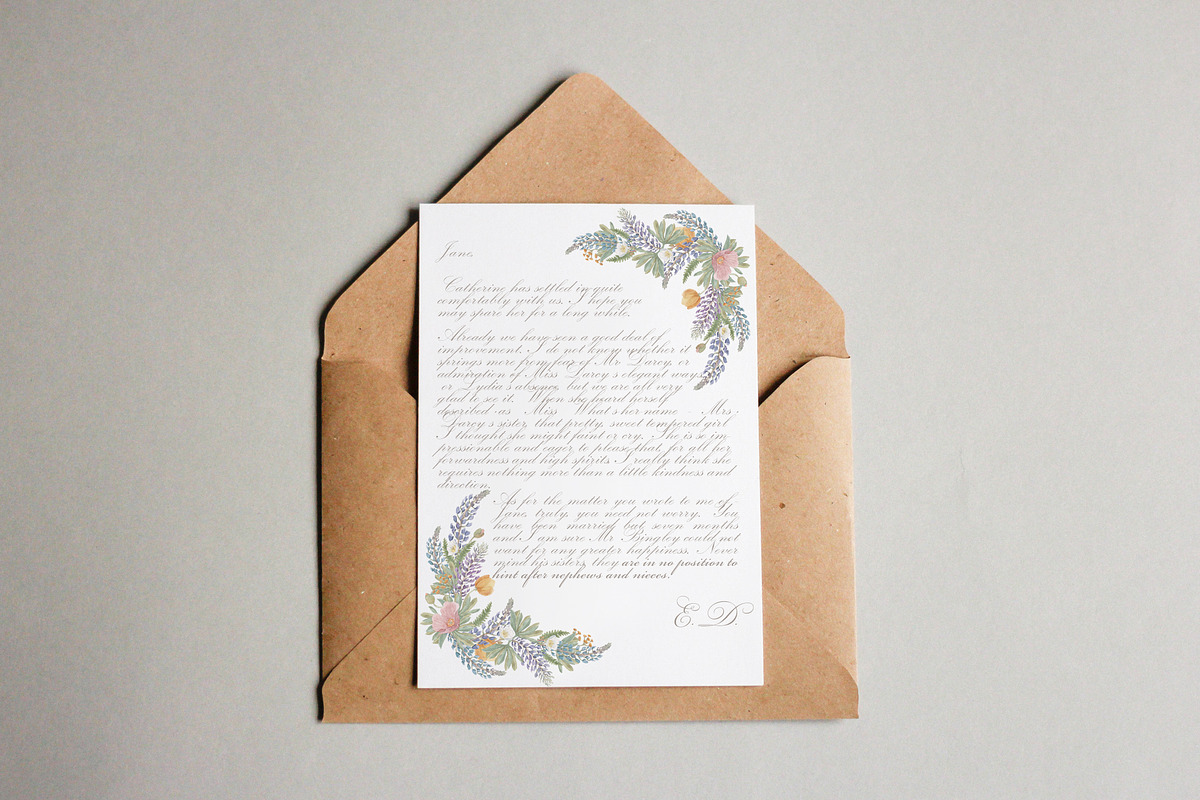 Jane,
Catherine has settled in quite
comfortably with us. I hope you
may spare her for a long while.
Already we have seen a good deal of
improvement. I do not know whether it
springs more from fear of Mr. Darcy, or
admiration of Miss Darcy's elegant ways,
or Lydia's absence, but we are all very
glad to see it. When she heard herself
described as "Miss What's her name - Mrs.
Darcy's sister, that pretty, sweet tempered girl"
I thought she might faint or cry. She is so im-
pressionable and eager to please that, for all her
forwardness and high spirits I really think she
requires nothing more than a little kindness and
direction.
As for the matter you wrote to me of,
Jane, truly, you need not worry. You
have been married but seven months
and I am sure Mr Bingley could not
want for any greater happiness. Never
mind his sisters, they are in no position to
hint after nephews and nieces!
E. D.